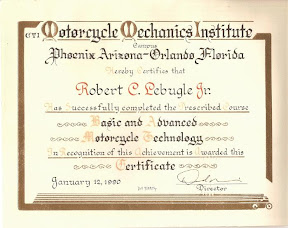 Motorcycle Mechanics Institute
Campus
Phoenix Arizona-Orlando Florida
Hereby Certifies that
Robert C. Lebugle Jr.
Has Successfully completed the Prescribed Course
Basic and Advanced
Motorcycle Technology
In Recognition of this Achievement is Awarded this
Certificate
January 12, 1990
Director